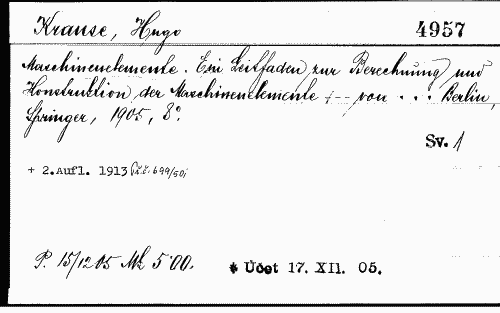 Krause, Hugo 4957
Maschinenelemente. Ein Leitfaden zur Berechnung und
Konstruktion der Maschinenelemente ;-- von ... Berlin,
Springer, 1905, 8°.
Sv. 1
+ 2.Aufl. 1913
P. 15/12 05 Mk 5·00. * Účet 17. XII. 05.